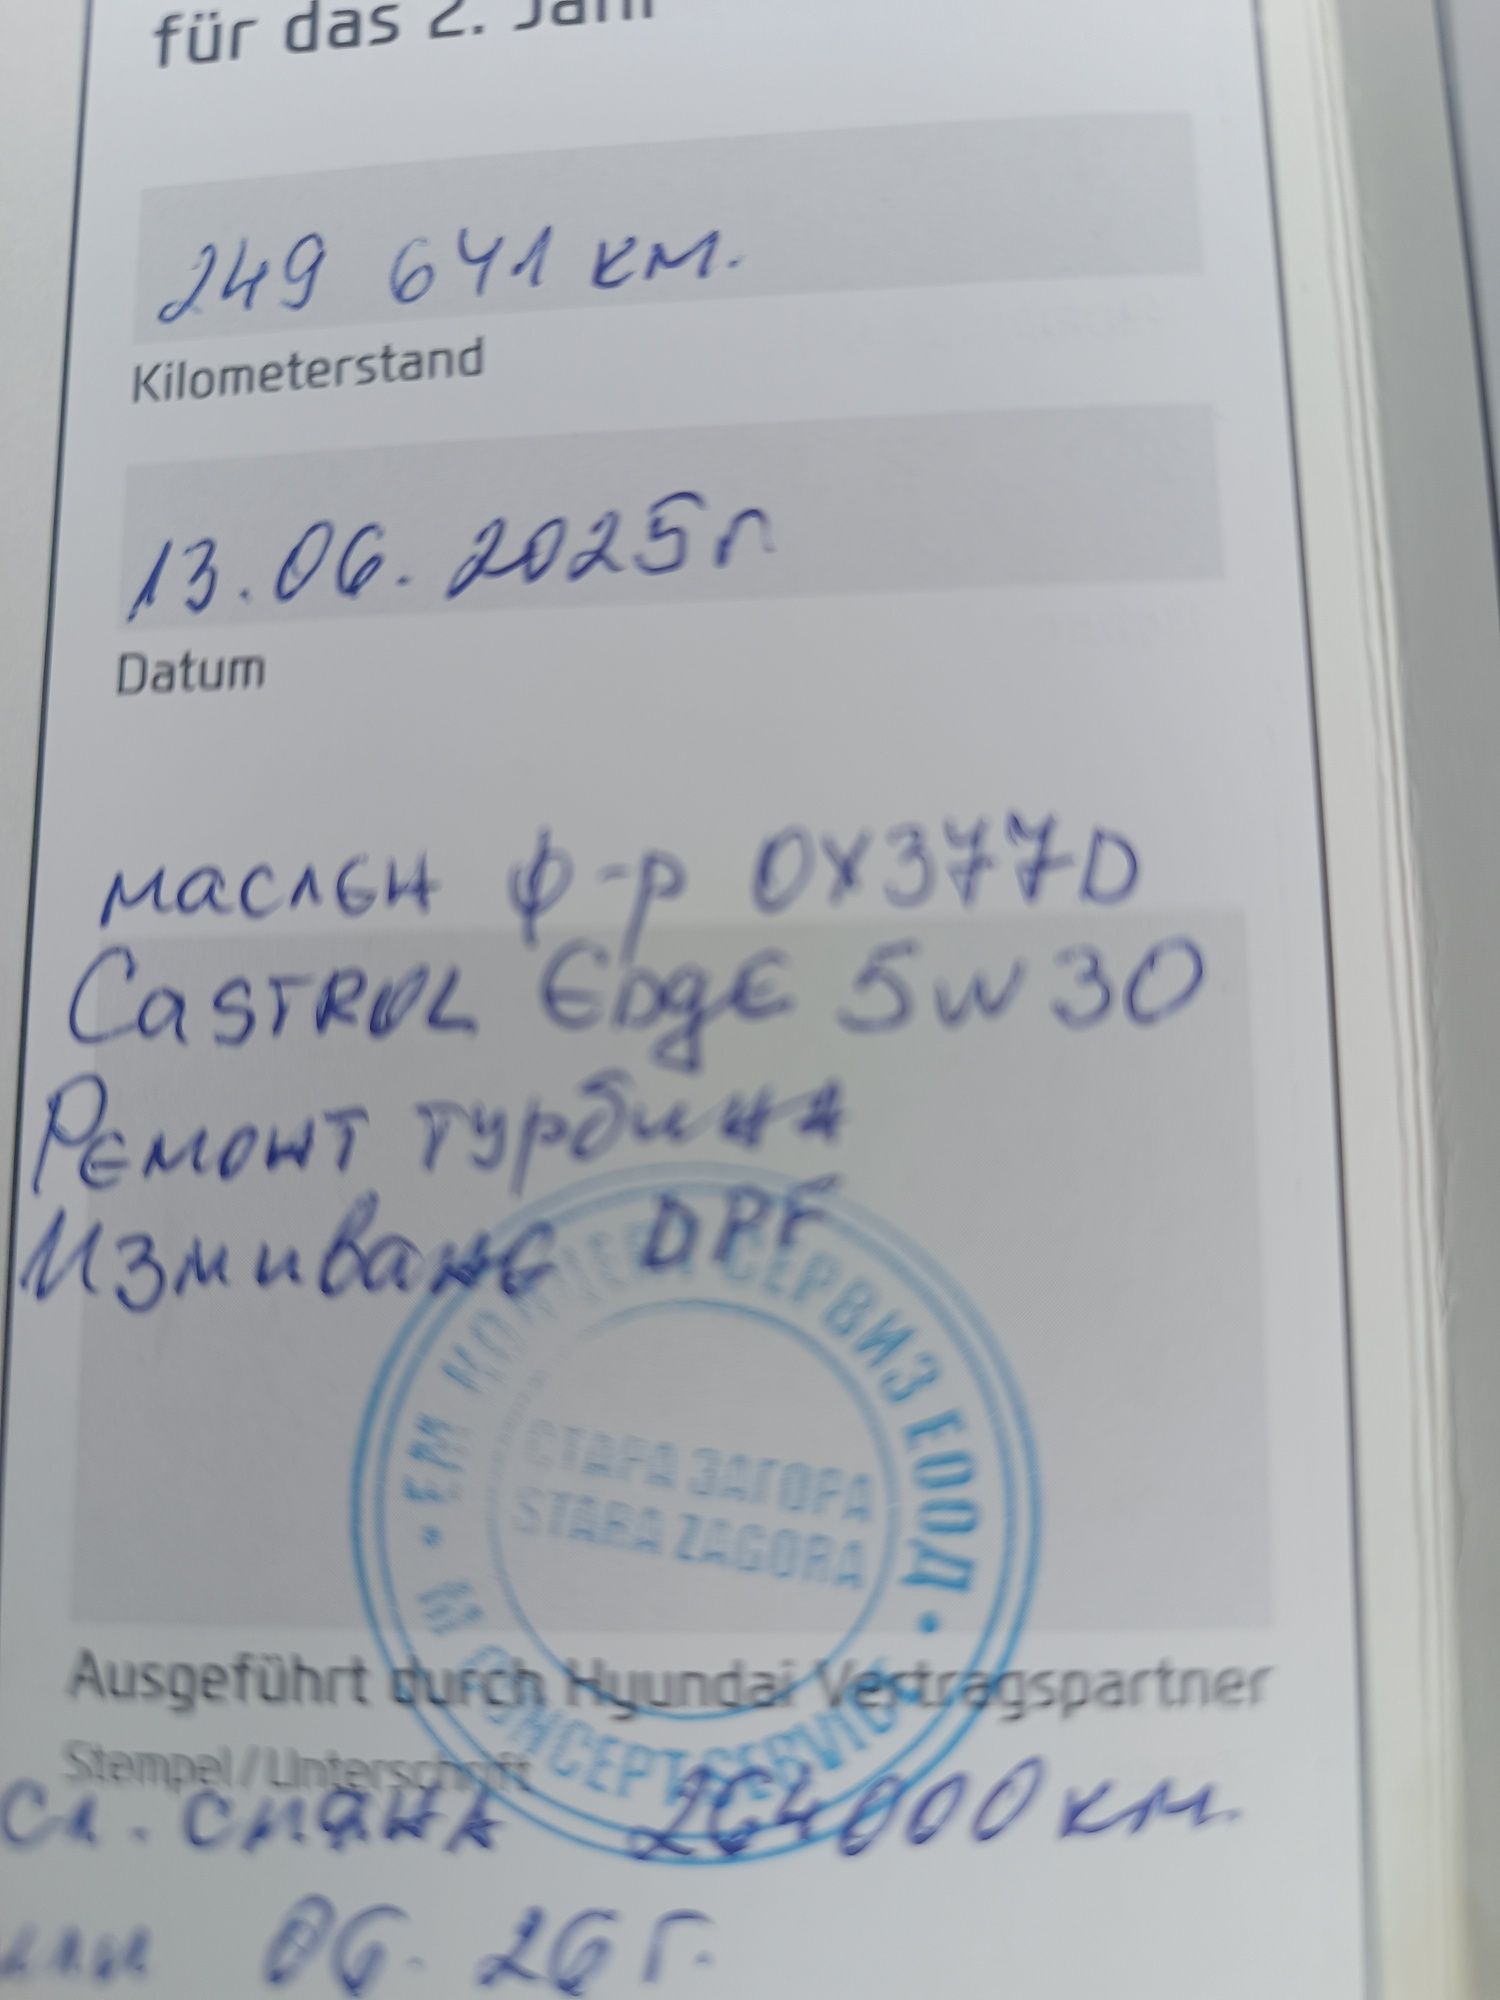 für das 2. Jahr
249 641 км.
Kilometerstand
13.06.2025г
Datum
маслен ф-р OX377D
Castrol EDgE 5w30
Ремонт турбина
Измиване DPF
ЕМ КОНЦЕПТ СЕРВИЗ ЕООД
СТАРА ЗАГОРА
STARA ZAGORA
M CONCEPT SERVICE
Ausgeführt durch Hyundai Vertragspartner
Stempel/Unterschrift
сл. смяна 264000 км.
или 06.26г.